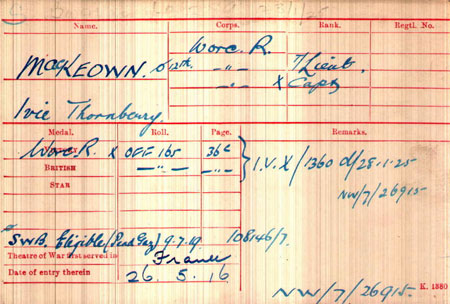 Name. Corps. Rank. Regtl. No.
Worc. R.
MacKEOWN. D 12th. -"- T/Lieut.
-"- X Capt.
Ivie Thornbury.
Medal. Roll. Page. Remarks.
Worc R. X OFF 165 36c
BRITISH -"- -"- I.V. X /1360 d/28.1.25
STAR NW/7/26915
S.W.B. Eligible (Pend Gaz) 9.7.19. 108146/7
Theatre of War first served in France
Date of entry therein 26. 5. 16
NW/7/26915. K. 1380